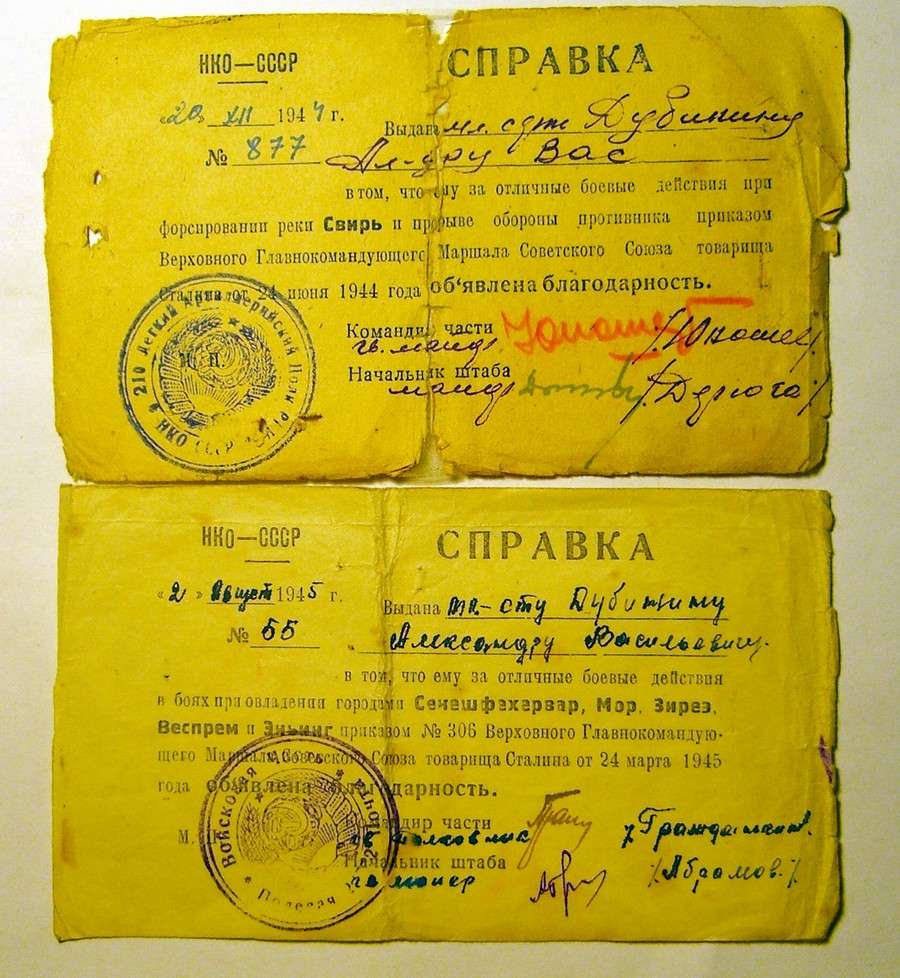 НКО—СССР
СПРАВКА
«20» XII 1944 г.
Выдана мл. сдж Дубинину
№ 877
Ал-дру Вас
в том, что ему за отличные боевые действия при
форсировании реки Свирь и прорыве обороны противника приказом
Верховного Главнокомандующего Маршала Советского Союза товарища
Сталина от 24 июня 1944 года об'явлена благодарность.
Командир части
гв. майор
Начальник штаба
майор /Дерюга/
М. П.
210 Легкий Артиллерийский Полк РГК
НКО СССР
НКО—СССР
СПРАВКА
«2» август 1945 г.
Выдана мл-сту Дубинину
№ 55
Александру Васильевичу.
в том, что ему за отличные боевые действия
в боях при овладении городами Секешфехервар, Мор, Зирез,
Веспрем и Эньинг приказом № 306 Верховного Главнокомандую-
щего Маршала Советского Союза товарища Сталина от 24 марта 1945
года об'явлена благодарность.
Командир части
гв полковник
М. П.
Начальник штаба
гв майор /Абрамов./
Войсковая часть
Полевая почта